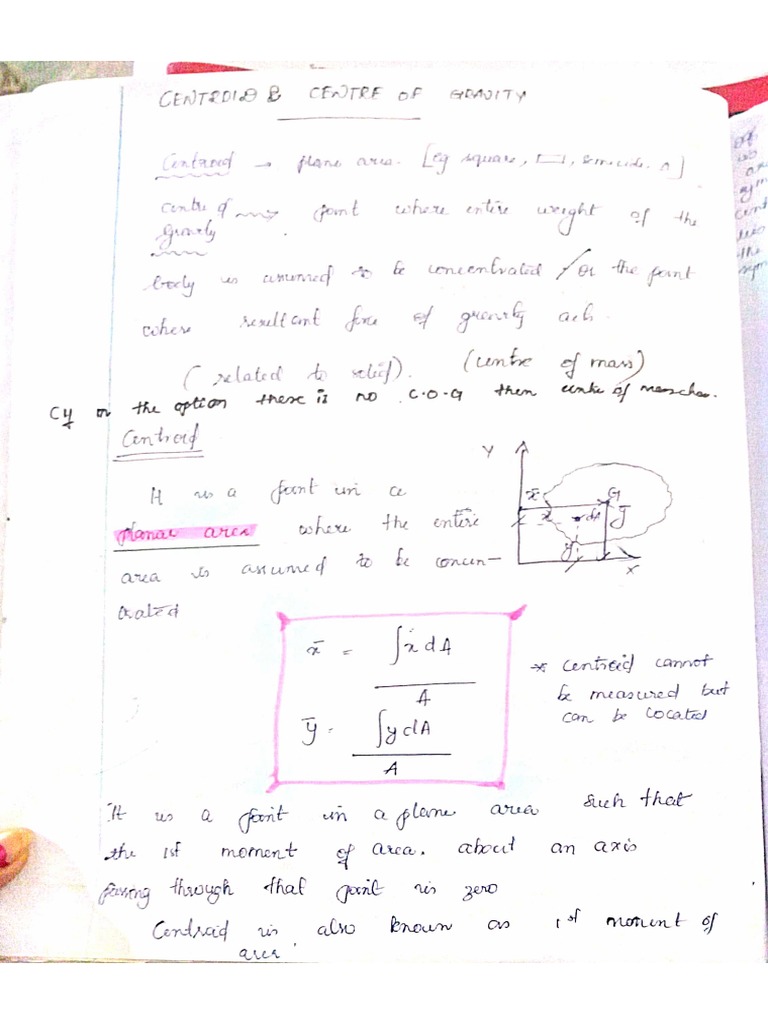 CENTROID & CENTRE OF GRAVITY
Centroid → plane area. [eg square, ▭, semicircle. △]
centre of gravity ⟿ point where entire weight of the
body is assumed to be concentrated / or the point
where resultant force of gravity acts.
(related to relief). (centre of mass)
If in the option there is no C.O.G then centre of
Centroid
It is a point in a
planar area where the entire
area is assumed to be concen-
trated
Y
x̄
G
x
dA
ȳ
y
X
x̄ = ∫x dA / A
ȳ = ∫y dA / A
* Centroid cannot
be measured but
can be located
It is a point in a plane area such that
the 1st moment of area. about an axis
passing through that point is zero
Centroid is also known as 1st moment of
area.
of